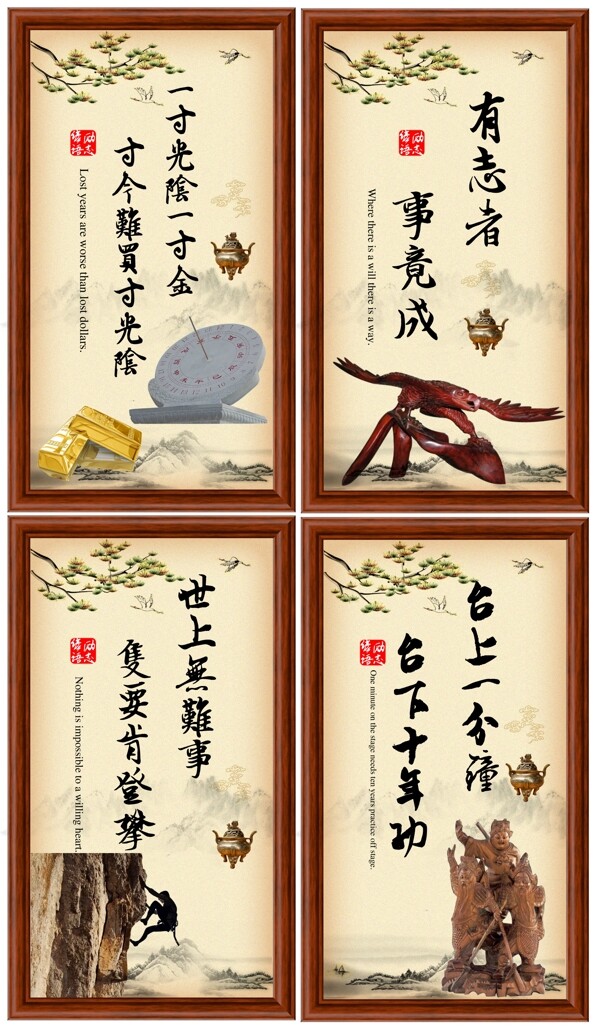 一寸光陰一寸金
寸今難買寸光陰
励志
Lost years are worse than lost dollars.
有志者
事竟成
励志
Where there is a will there is a way.
世上無難事
隻要肯登攀
励志
Nothing is impossible to a willing heart.
台上一分鐘
台下十年功
励志
One minute on the stage needs ten years practice off stage.